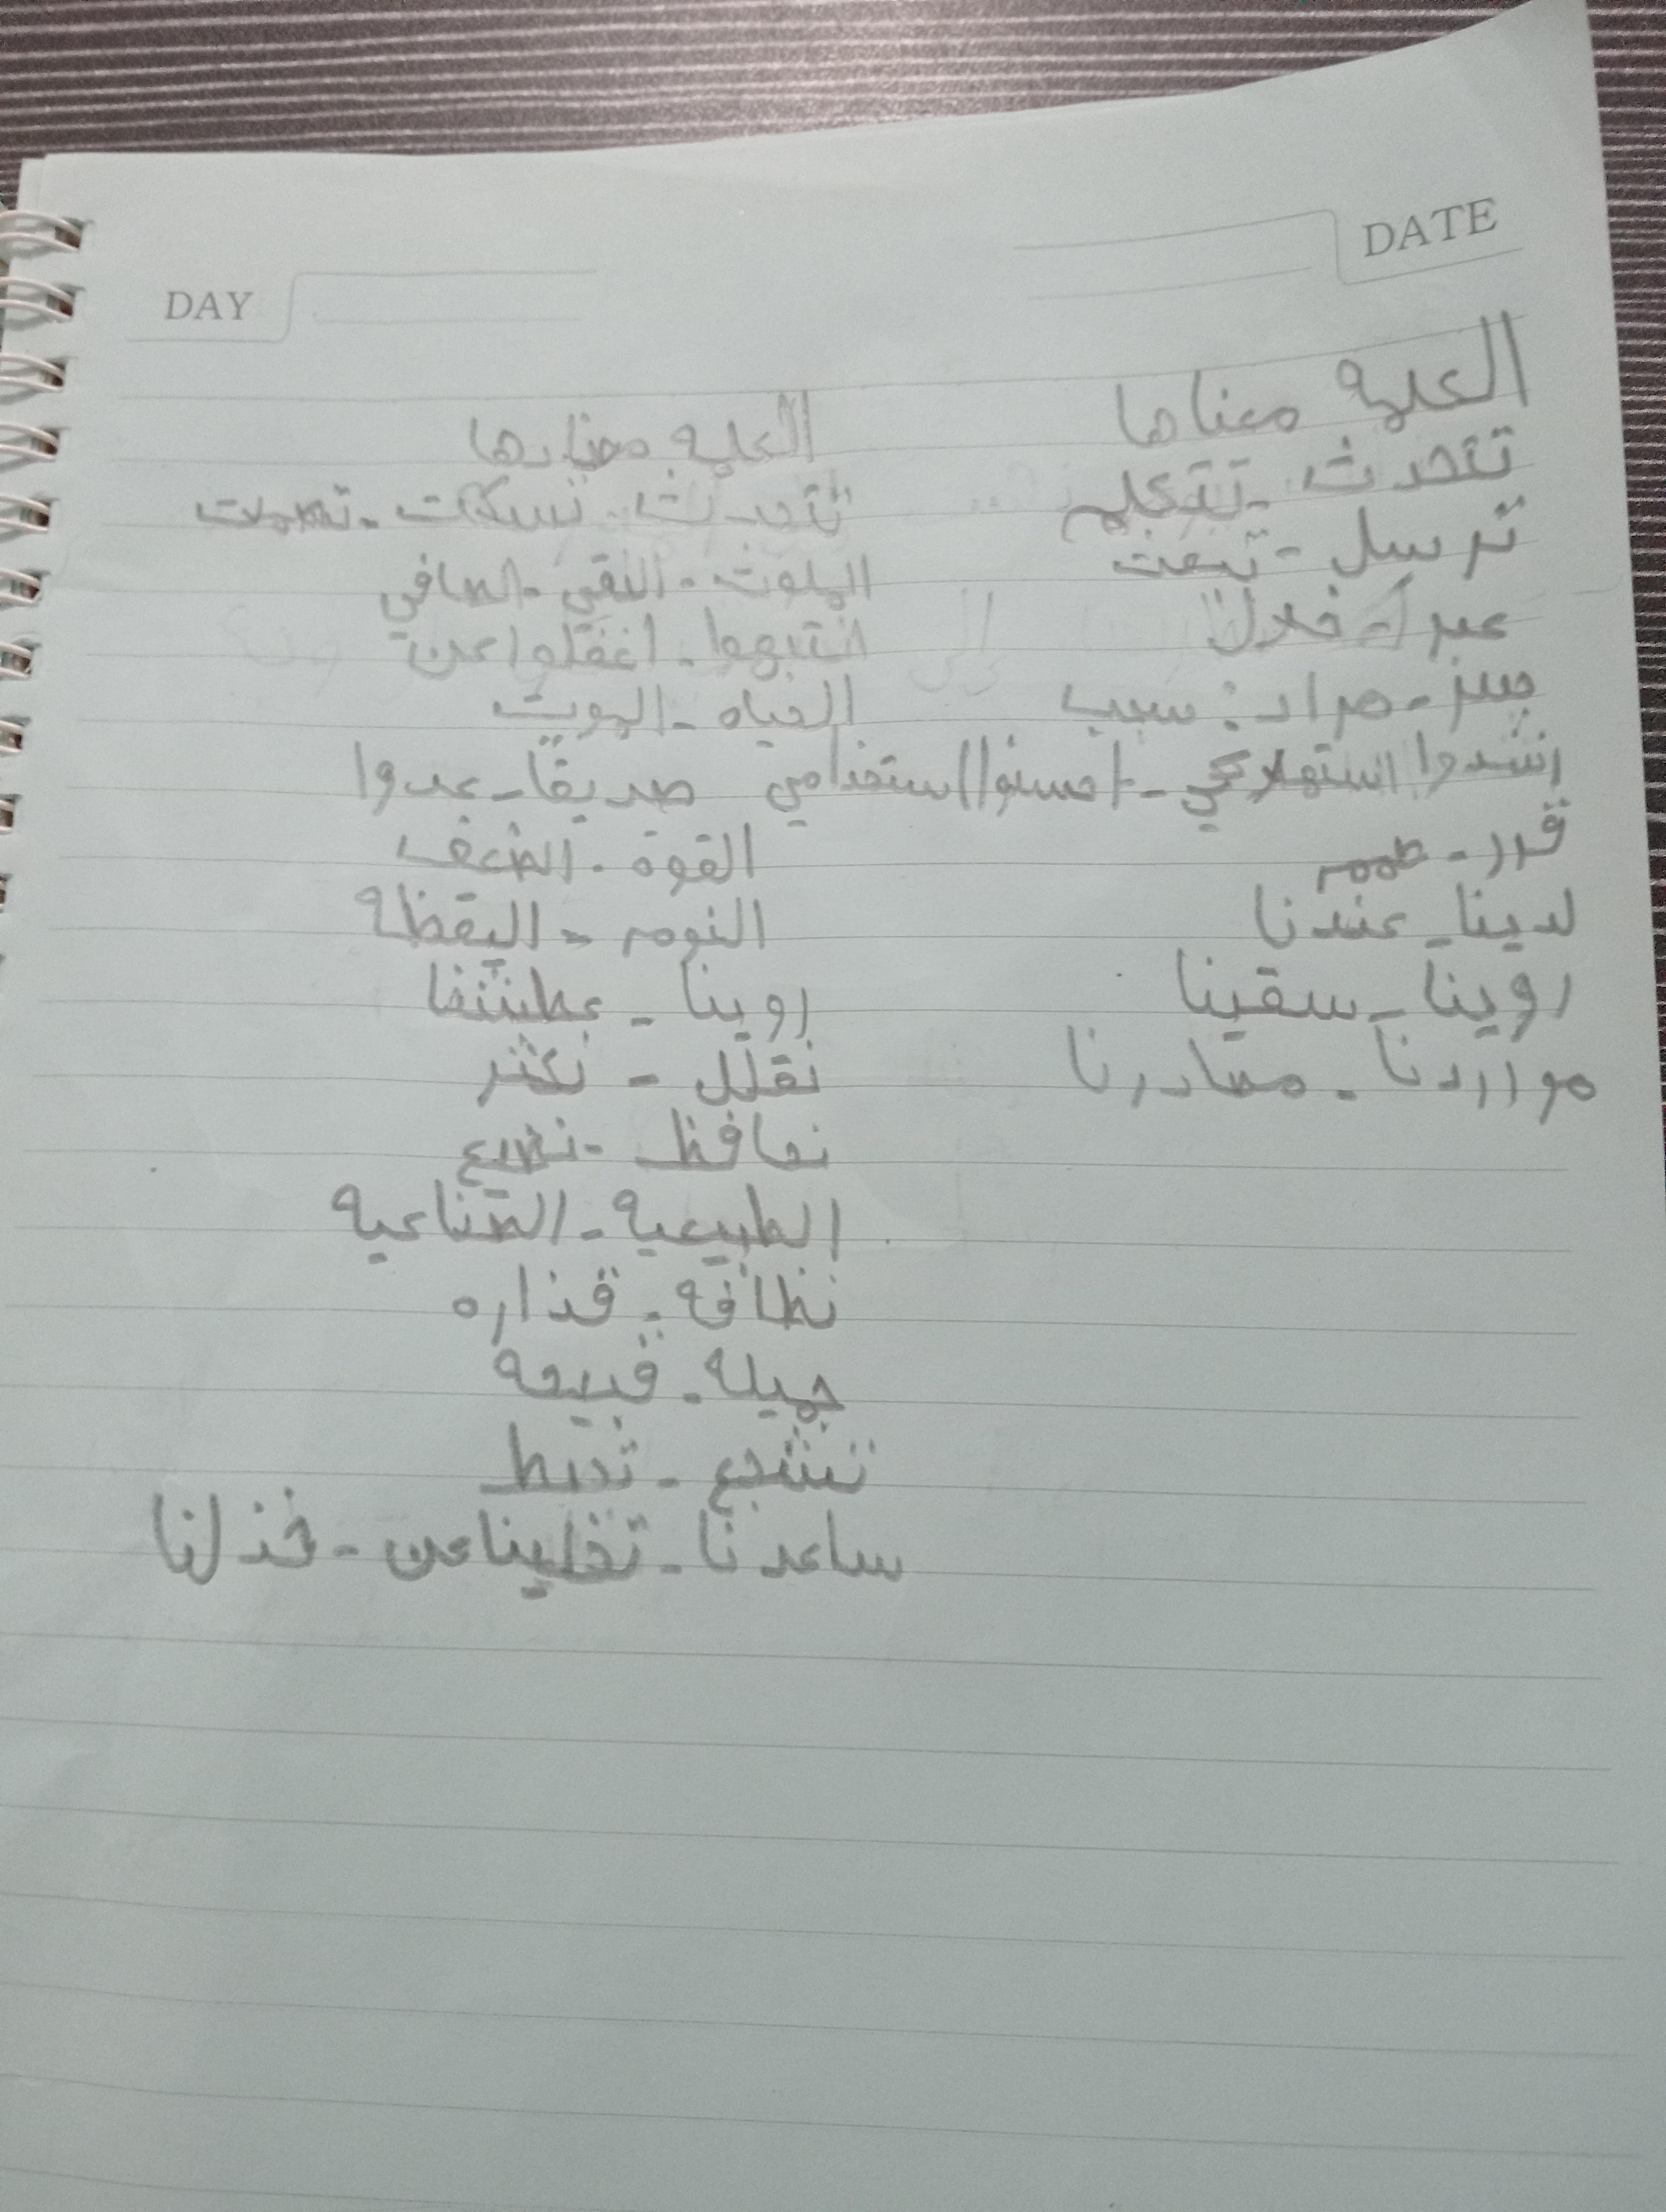 DATE
DAY
الكلمة معناها
تتحدث - تتكلم
ترسل - تبعث
عبر - خلال
جسز - مراد : سبب
رشدوا استهلاكي - احسنوا استخدامي
قرر - صمم
لدينا - عندنا
روينا - سقينا
مواردنا - مصادرنا
الكلمه مضادها
تتحدث - تسكت - تصمت
الملوث - النقي - الصافي
انتبهوا - اغفلوا عن
الحياه - الموت
صديقا - عدوا
القوة - الضعف
النوم - اليقظه
روينا - عطشنا
نقلل - نكثر
نحافظ - نضيع
الطبيعيه - الصناعيه
نظافه - قذاره
جميله - قبيحه
تشجع - تحبط
ساعدنا - تخلينا عن - خذلنا